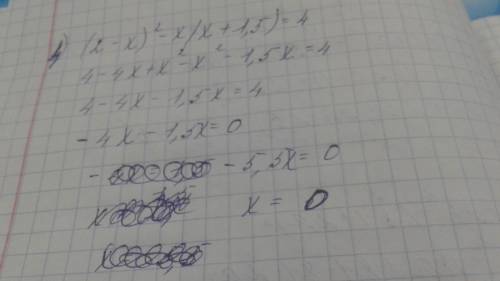 4) (2-x)²-x(x+1,5)=4
4-4x+x²-x²-1,5x=4
4-4x-1,5x=4
-4x-1,5x=0
- -5,5x=0
x x=0
x